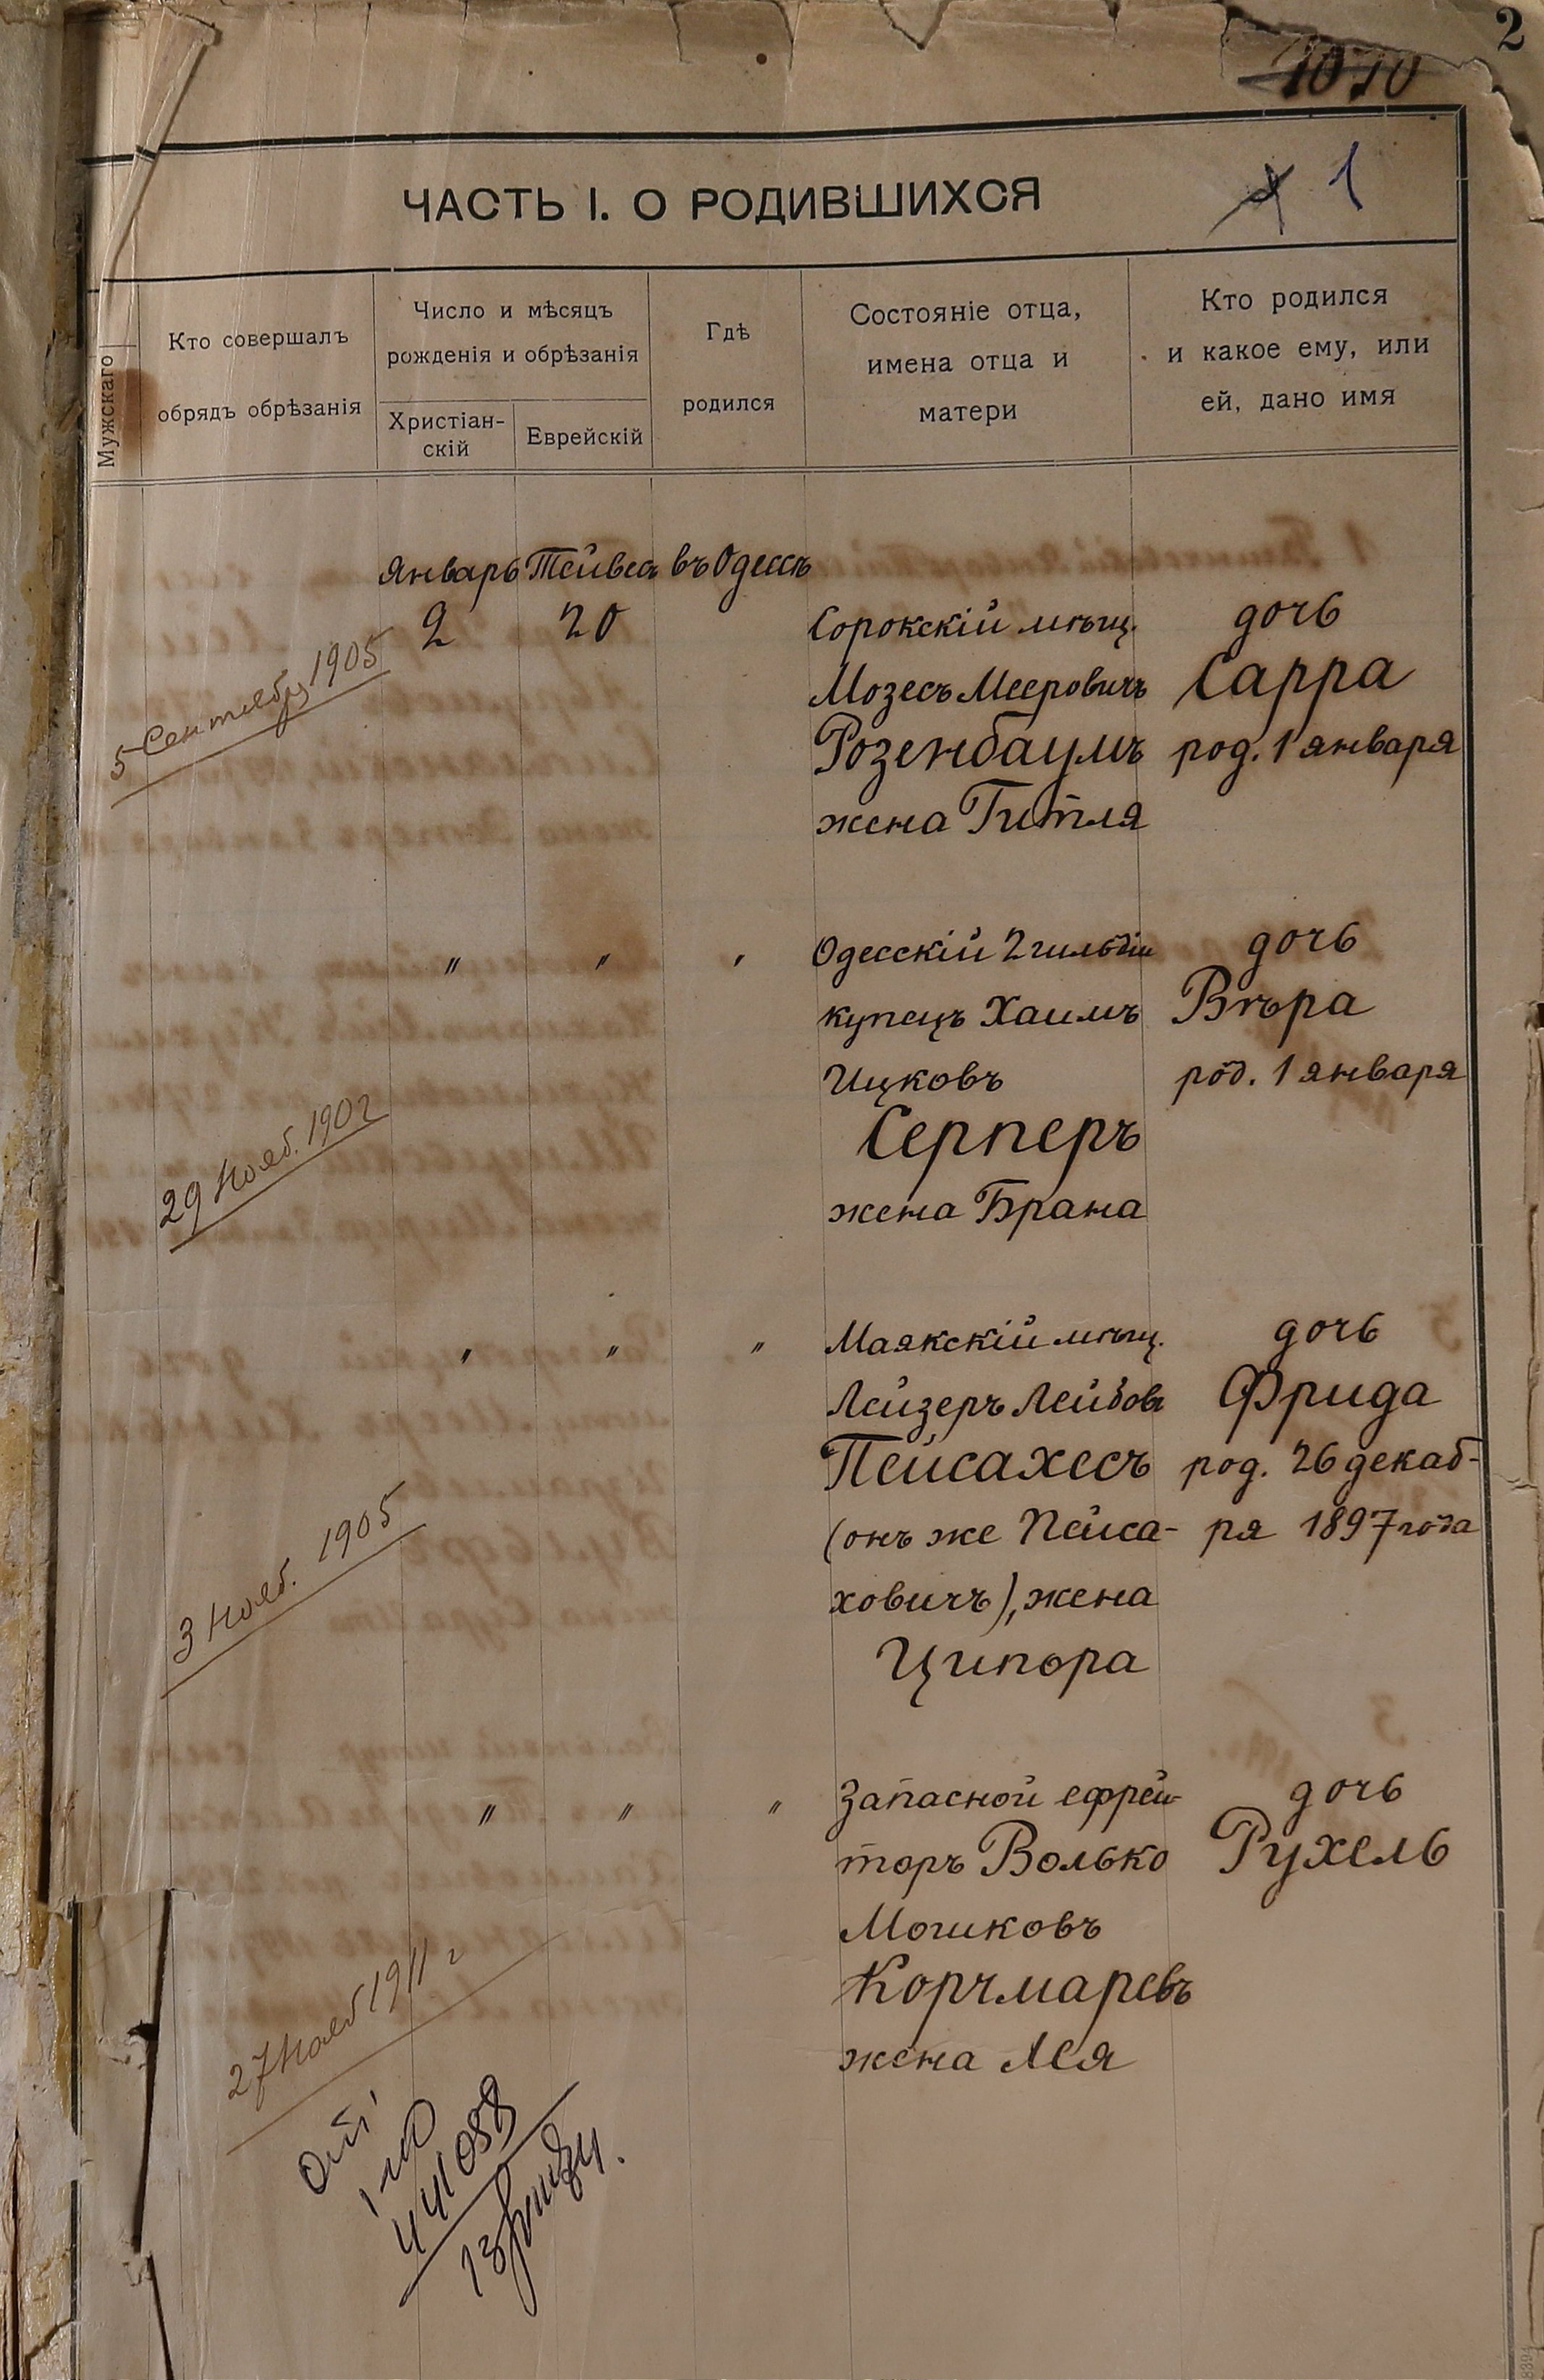 2
1010
ЧАСТЬ I. О РОДИВШИХСЯ
1
Мужскаго
Кто совершалъ
обрядъ обрѣзанія
Число и мѣсяцъ
рожденія и обрѣзанія
Христіан-
скій
Еврейскій
Гдѣ
родился
Состояніе отца,
имена отца и
матери
Кто родился
и какое ему, или
ей, дано имя
Январь Тейвес въ Одессѣ
2 20 Сорокскій мѣщ. дочь
5 Сентября 1905
Мозесъ Мееровичъ Сарра
Розенбаумъ род. 1 января
жена Гитля
" " " Одесскій 2 гильдіи дочь
купецъ Хаимъ Вѣра
Ицковъ род. 1 января
29 Нояб. 1902
Серперъ
жена Брана
" " " Маякскій мѣщ. дочь
Лейзеръ Лейбовъ Фрида
Пейсахесъ род. 26 декаб-
3 Нояб. 1905
(онъ же Пейса- ря 1897 года
ховичъ), жена
Ципора
" " " Запасной ефрей- дочь
торъ Волько Рухель
Мошковъ
27 Нояб 1911 г
Корчмаревъ
жена Лея
441088